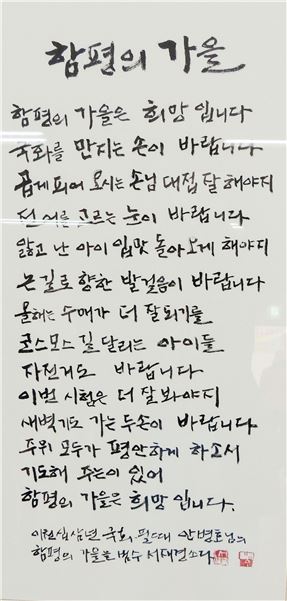 함평의 가을
함평의 가을은 희망 입니다
국화를 만지는 손이 바랍니다
곱게 피어 오시는 손님 대접 잘 해야지
전어를 고르는 눈이 바랍니다
앓고 난 아이 입맛 돌아오게 해야지
논길로 향한 발걸음이 바랍니다
올해는 수매가 더 잘 되기를
코스모스 길 달리는 아이들
자전거도 바랍니다
이번 시험은 더 잘 봐야지
새벽기도 가는 두손이 바랍니다
주위 모두가 평안하게 하소서
기도해 주는이 있어
함평의 가을은 희망 입니다.
이천십삼년 국화 필 때 안병호님의
함평의 가을을 범수 서대견 쓰다